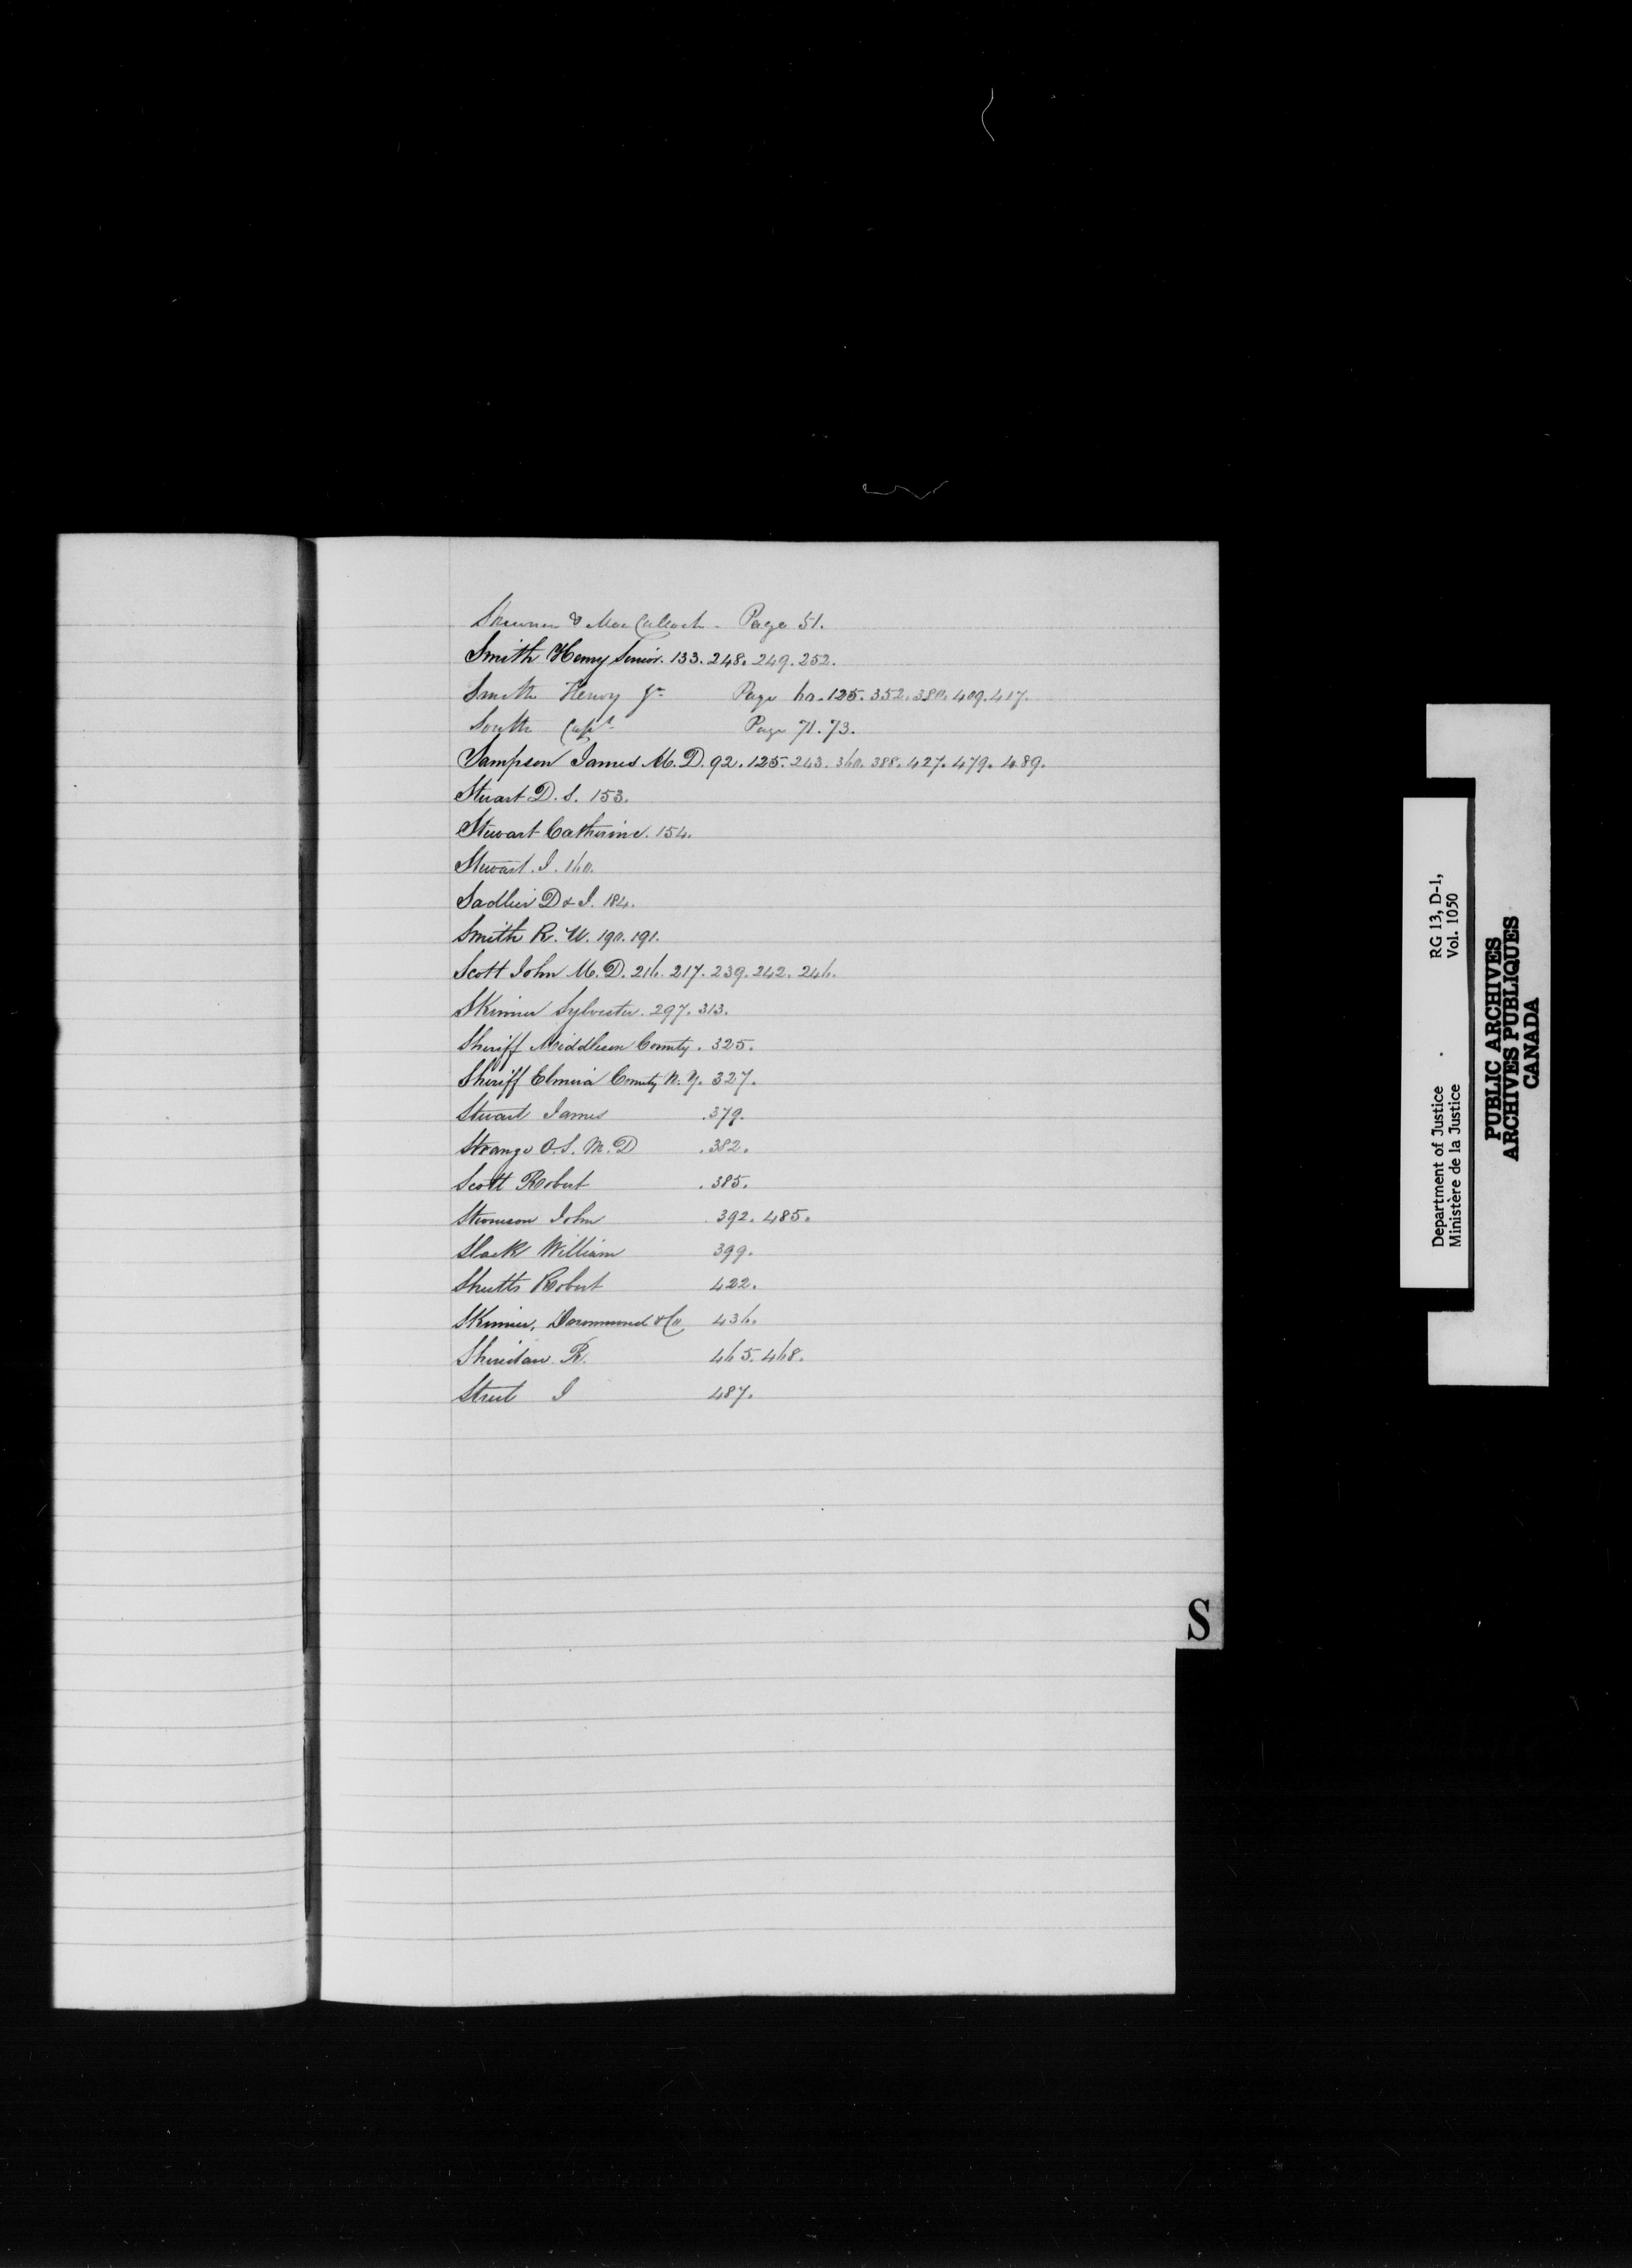 & MacCulloch - Page 51.
Smith Henry Senior. 133. 248. 249. 252.
Smith Henry Jr Page 60. 125. 352. 380. 409. 417.
South Capt. Page 71. 73.
Sampson James M.D. 92. 125. 243. 360. 388. 427. 479. 489.
Stuart D. S. 153.
Stewart Catherine. 154.
Stewart. J. 160.
Sadlier D & J. 184.
Smith R. W. 190. 191.
Scott John M.D. 216. 217. 239. 242. 246.
Skinner Sylvester. 297. 313.
Sheriff Middlesex County. 325.
Sheriff Elmira County N. Y. 327.
Stuart James .379.
Strange O. S. M. D .382.
Scott Robert .385.
John .392. 485.
Slack William 399.
Shutts Robert 422.
Skinner, & Co. 436.
Sheridan R. 465. 468.
Street J 487.
S
Department of Justice RG 13, D-1,
Ministère de la Justice Vol. 1050
PUBLIC ARCHIVES
ARCHIVES PUBLIQUES
CANADA